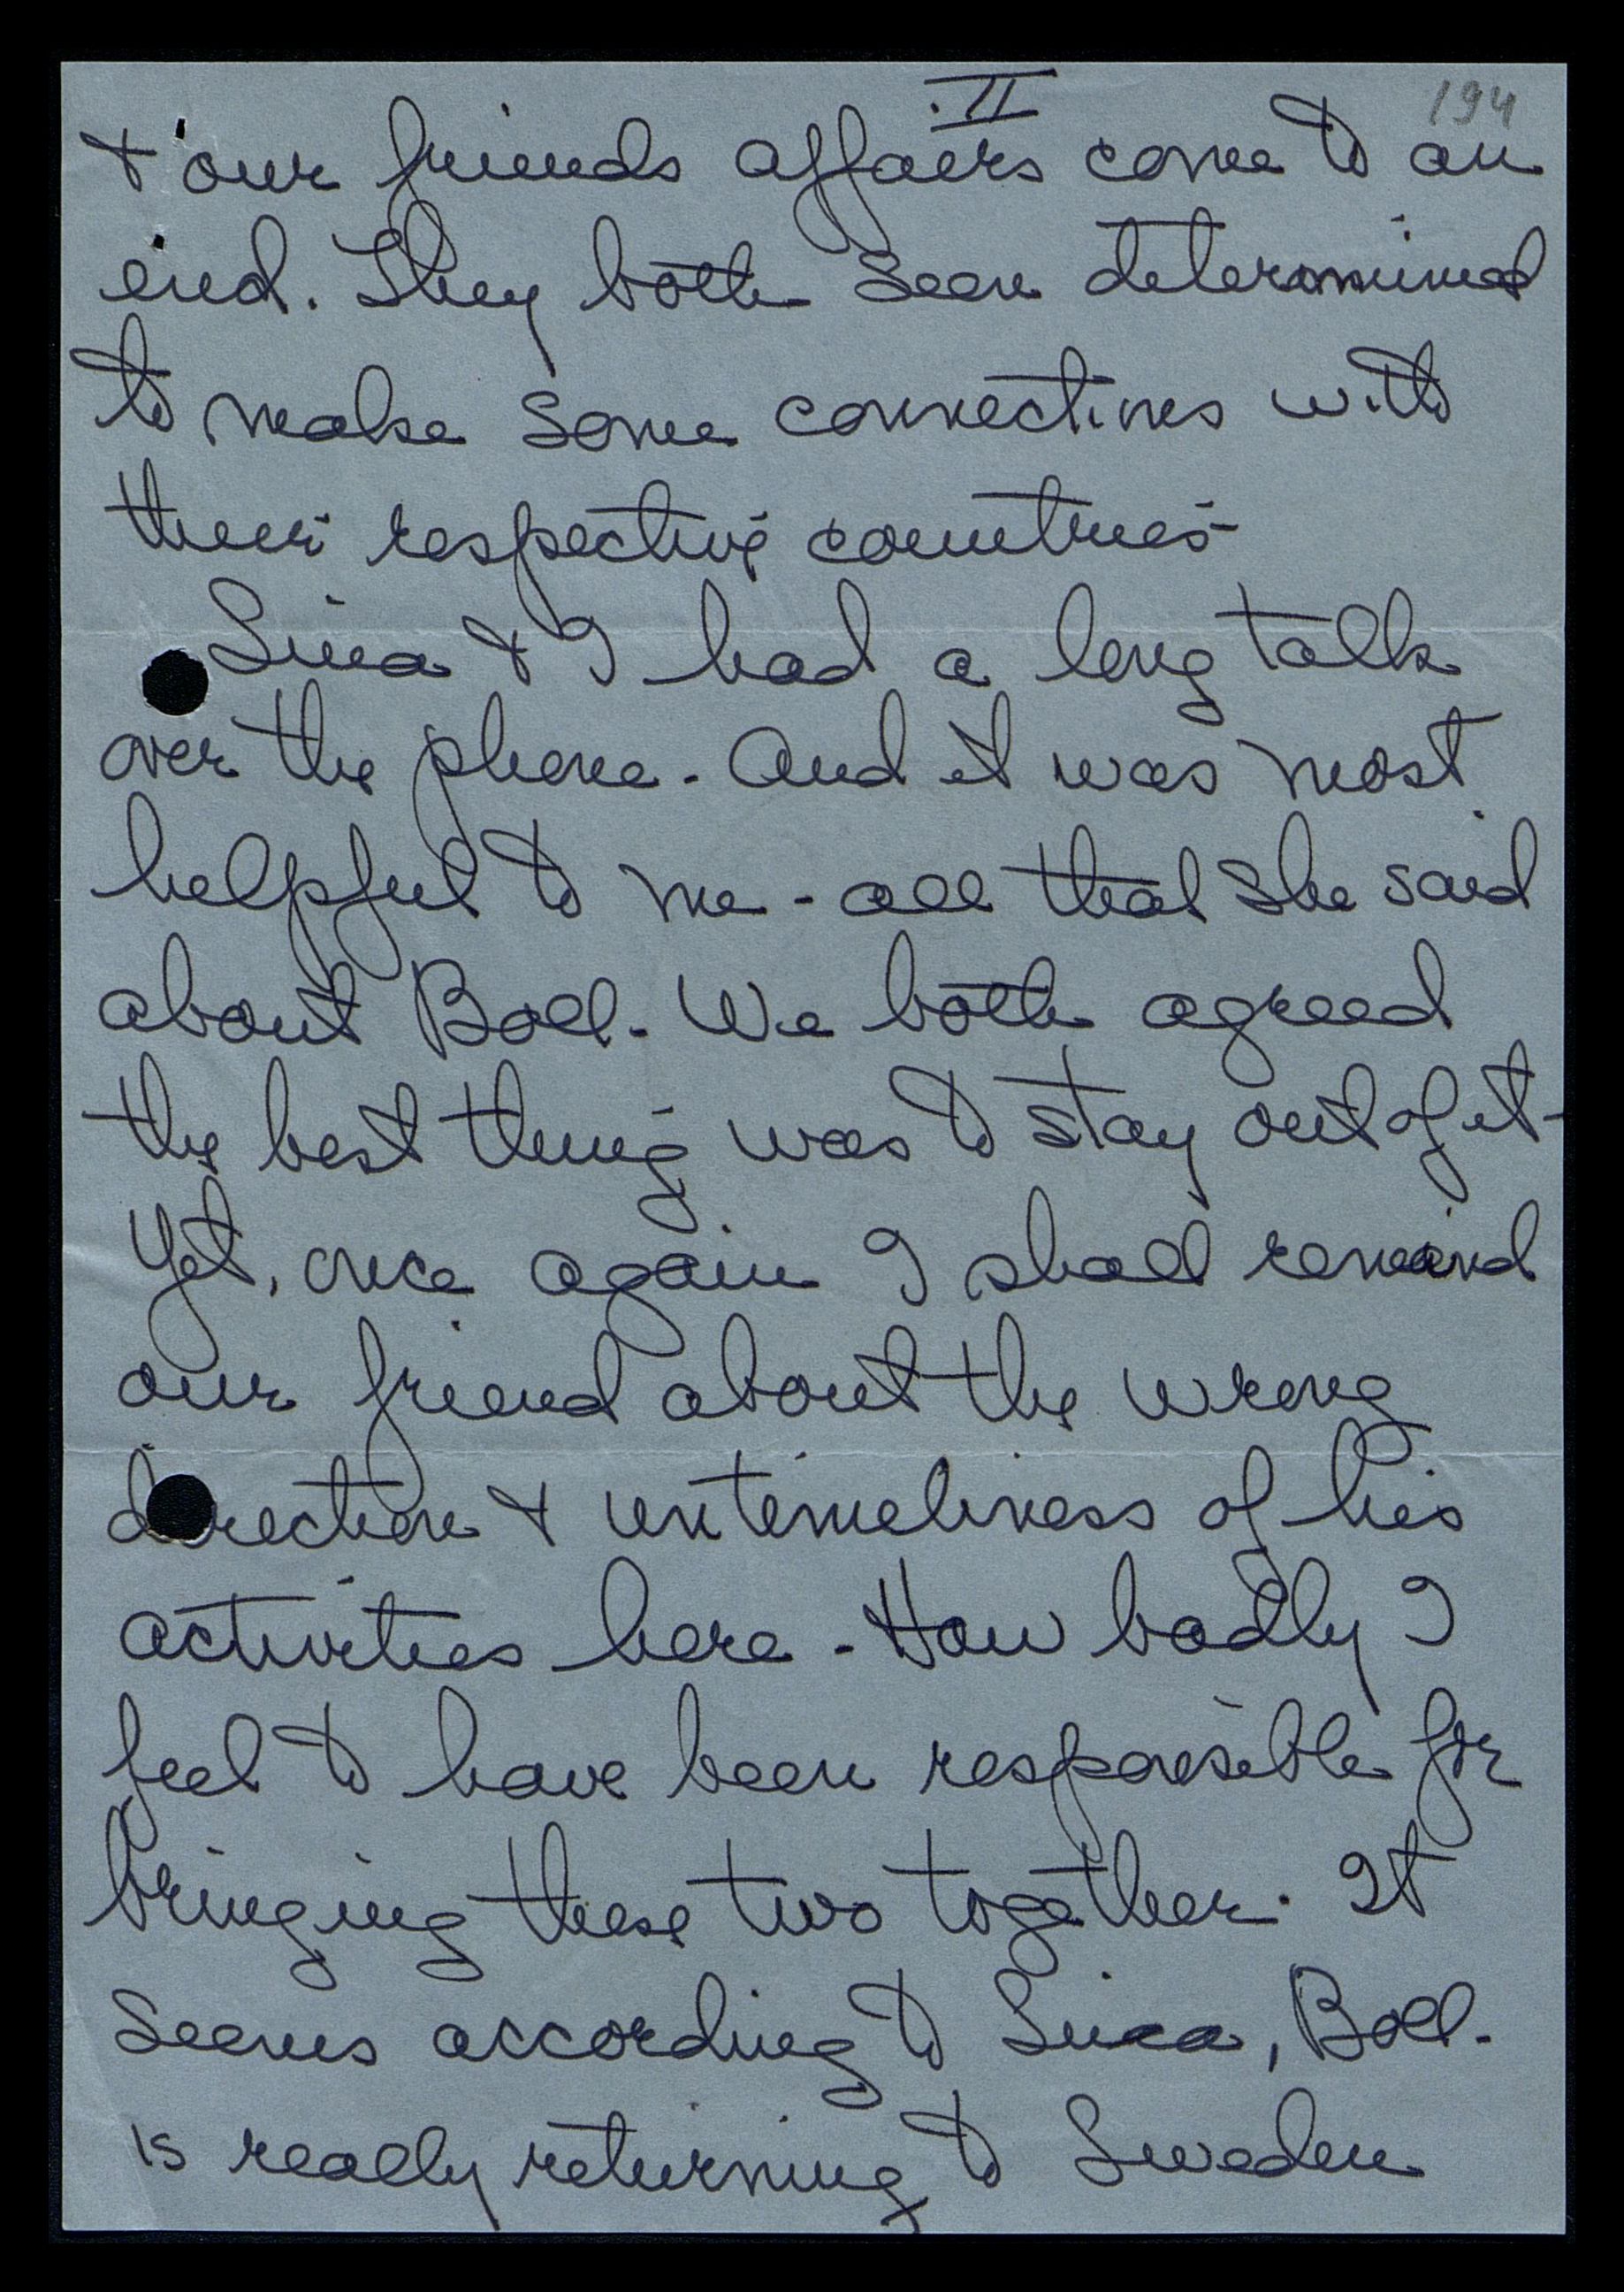 II
194
& our friends affairs come to an
end. They both seem determined
to make some connections with
their respective countries-
Sina & I had a long talk
over the phone. And it was most
helpful to me - all that she said
about Boll. We both agreed
the best thing was to stay out of it-
Yet, once again I shall remind
our friend about the wrong
direction & untimeliness of his
activities here - How badly I
feel to have been responsible for
bringing these two together. It
seems according to Sina, Boll.
is really returning to Sweden